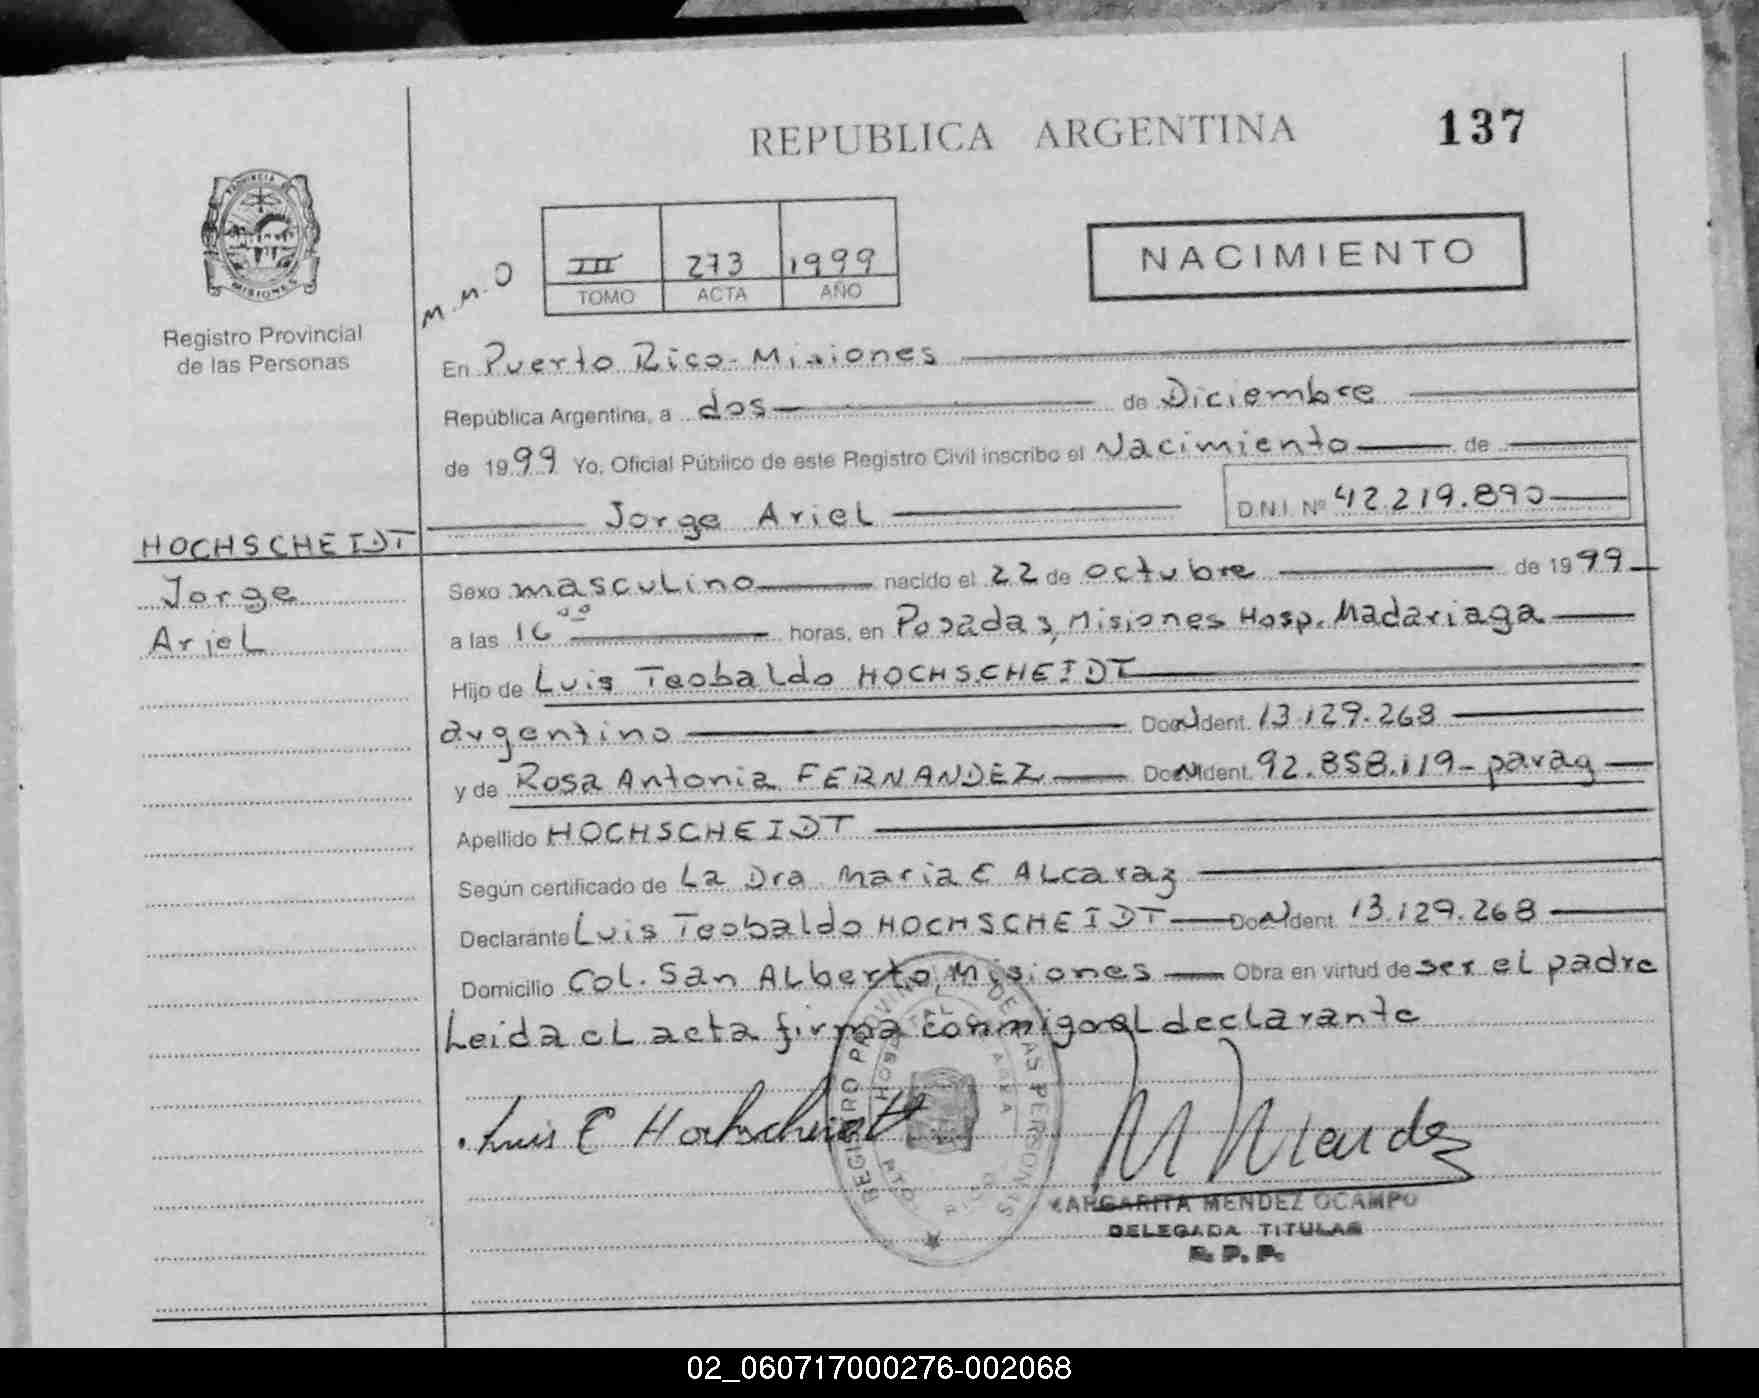 REPUBLICA ARGENTINA
137
PROVINCIA DE
MISIONES
Registro Provincial
de las Personas
M.M.O
III 273 1999
TOMO ACTA AÑO
NACIMIENTO
En Puerto Rico - Misiones
República Argentina, a dos de Diciembre
de 1999 Yo, Oficial Público de este Registro Civil inscribo el Nacimiento de
Jorge Ariel D.N.I. Nº 42.219.890
HOCHSCHEIDT
Jorge
Ariel
Sexo masculino nacido el 22 de octubre de 1999
a las 16 00 horas, en Posadas, Misiones Hosp. Madariaga
Hijo de Luis Teobaldo HOCHSCHEIDT
argentino Doc. Ident. 13.129.268
y de Rosa Antonia FERNANDEZ Doc. Ident. 92.858.119 - parag
Apellido HOCHSCHEIDT
Según certificado de La Dra Maria E Alcaraz
Declarante Luis Teobaldo HOCHSCHEIDT Doc. Ident. 13.129.268
Domicilio Col. San Alberto, Misiones Obra en virtud de ser el padre
Leida el acta firma conmigo el declarante
Luis E Hochscheidt
M Mendez
REGISTRO PROVINCIAL DE LAS PERSONAS
MARGARITA MENDEZ OCAMPO
DELEGADA TITULAR
R. P. P.
02_060717000276-002068